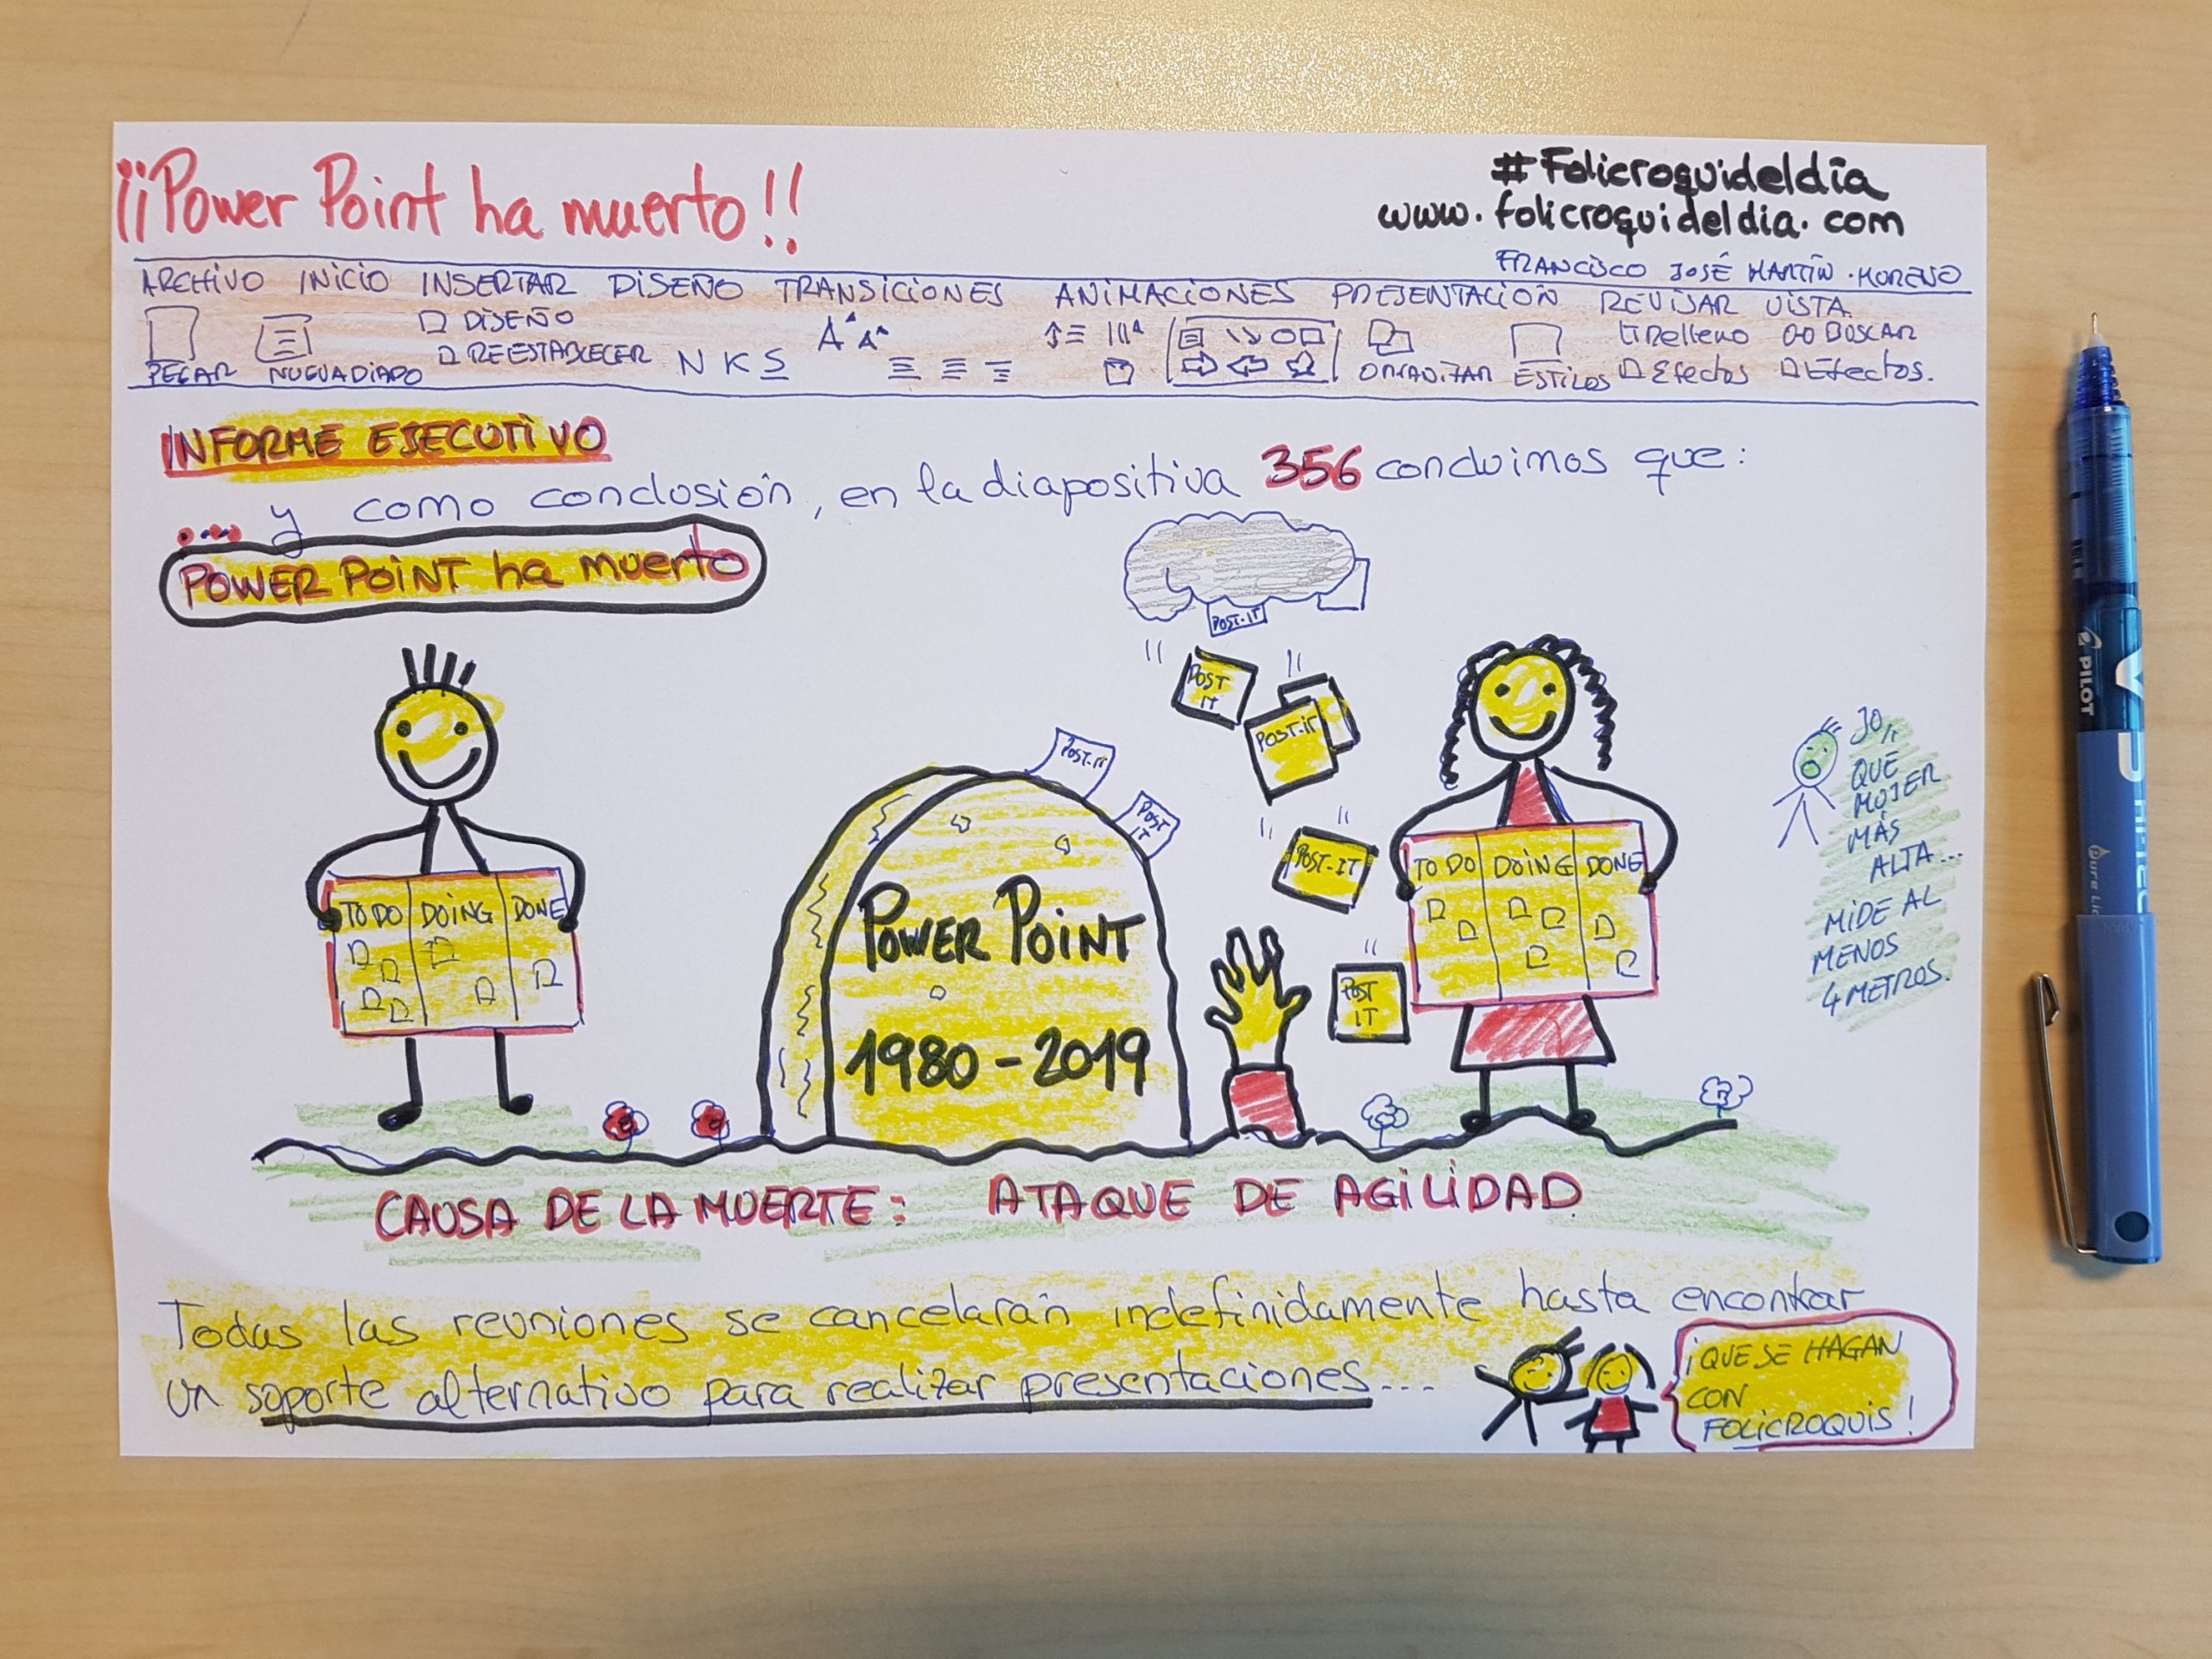 ¡¡Power Point ha muerto!!
#Folicroquideldía
www.folicroquideldia.com
FRANCISCO JOSÉ MARTÍN-MORENO
ARCHIVO INICIO INSERTAR DISEÑO TRANSICIONES ANIMACIONES PRESENTACIÓN REVISAR VISTA
DISEÑO
REESTABLECER
PEGAR NUEVA DIAPO
N K S
A A
ORGANIZAR ESTILOS
Relleno BUSCAR
Efectos Efectos.
INFORME EJECUTIVO
.... y como conclusión, en la diapositiva 356 concluimos que:
POWER POINT ha muerto
POST-IT
POST
IT
POST-IT
POST-IT
POST
IT
POST-IT
POST
IT
TO DO DOING DONE
TO DO DOING DONE
POWER POINT
1980-2019
JO,
QUE
MUJER
MÁS
ALTA...
MIDE AL
MENOS
4 METROS.
CAUSA DE LA MUERTE: ATAQUE DE AGILIDAD
Todas las reuniones se cancelarán indefinidamente hasta encontrar
un soporte alternativo para realizar presentaciones...
¡QUE SE HAGAN
CON
FOLICROQUIS!
PILOT